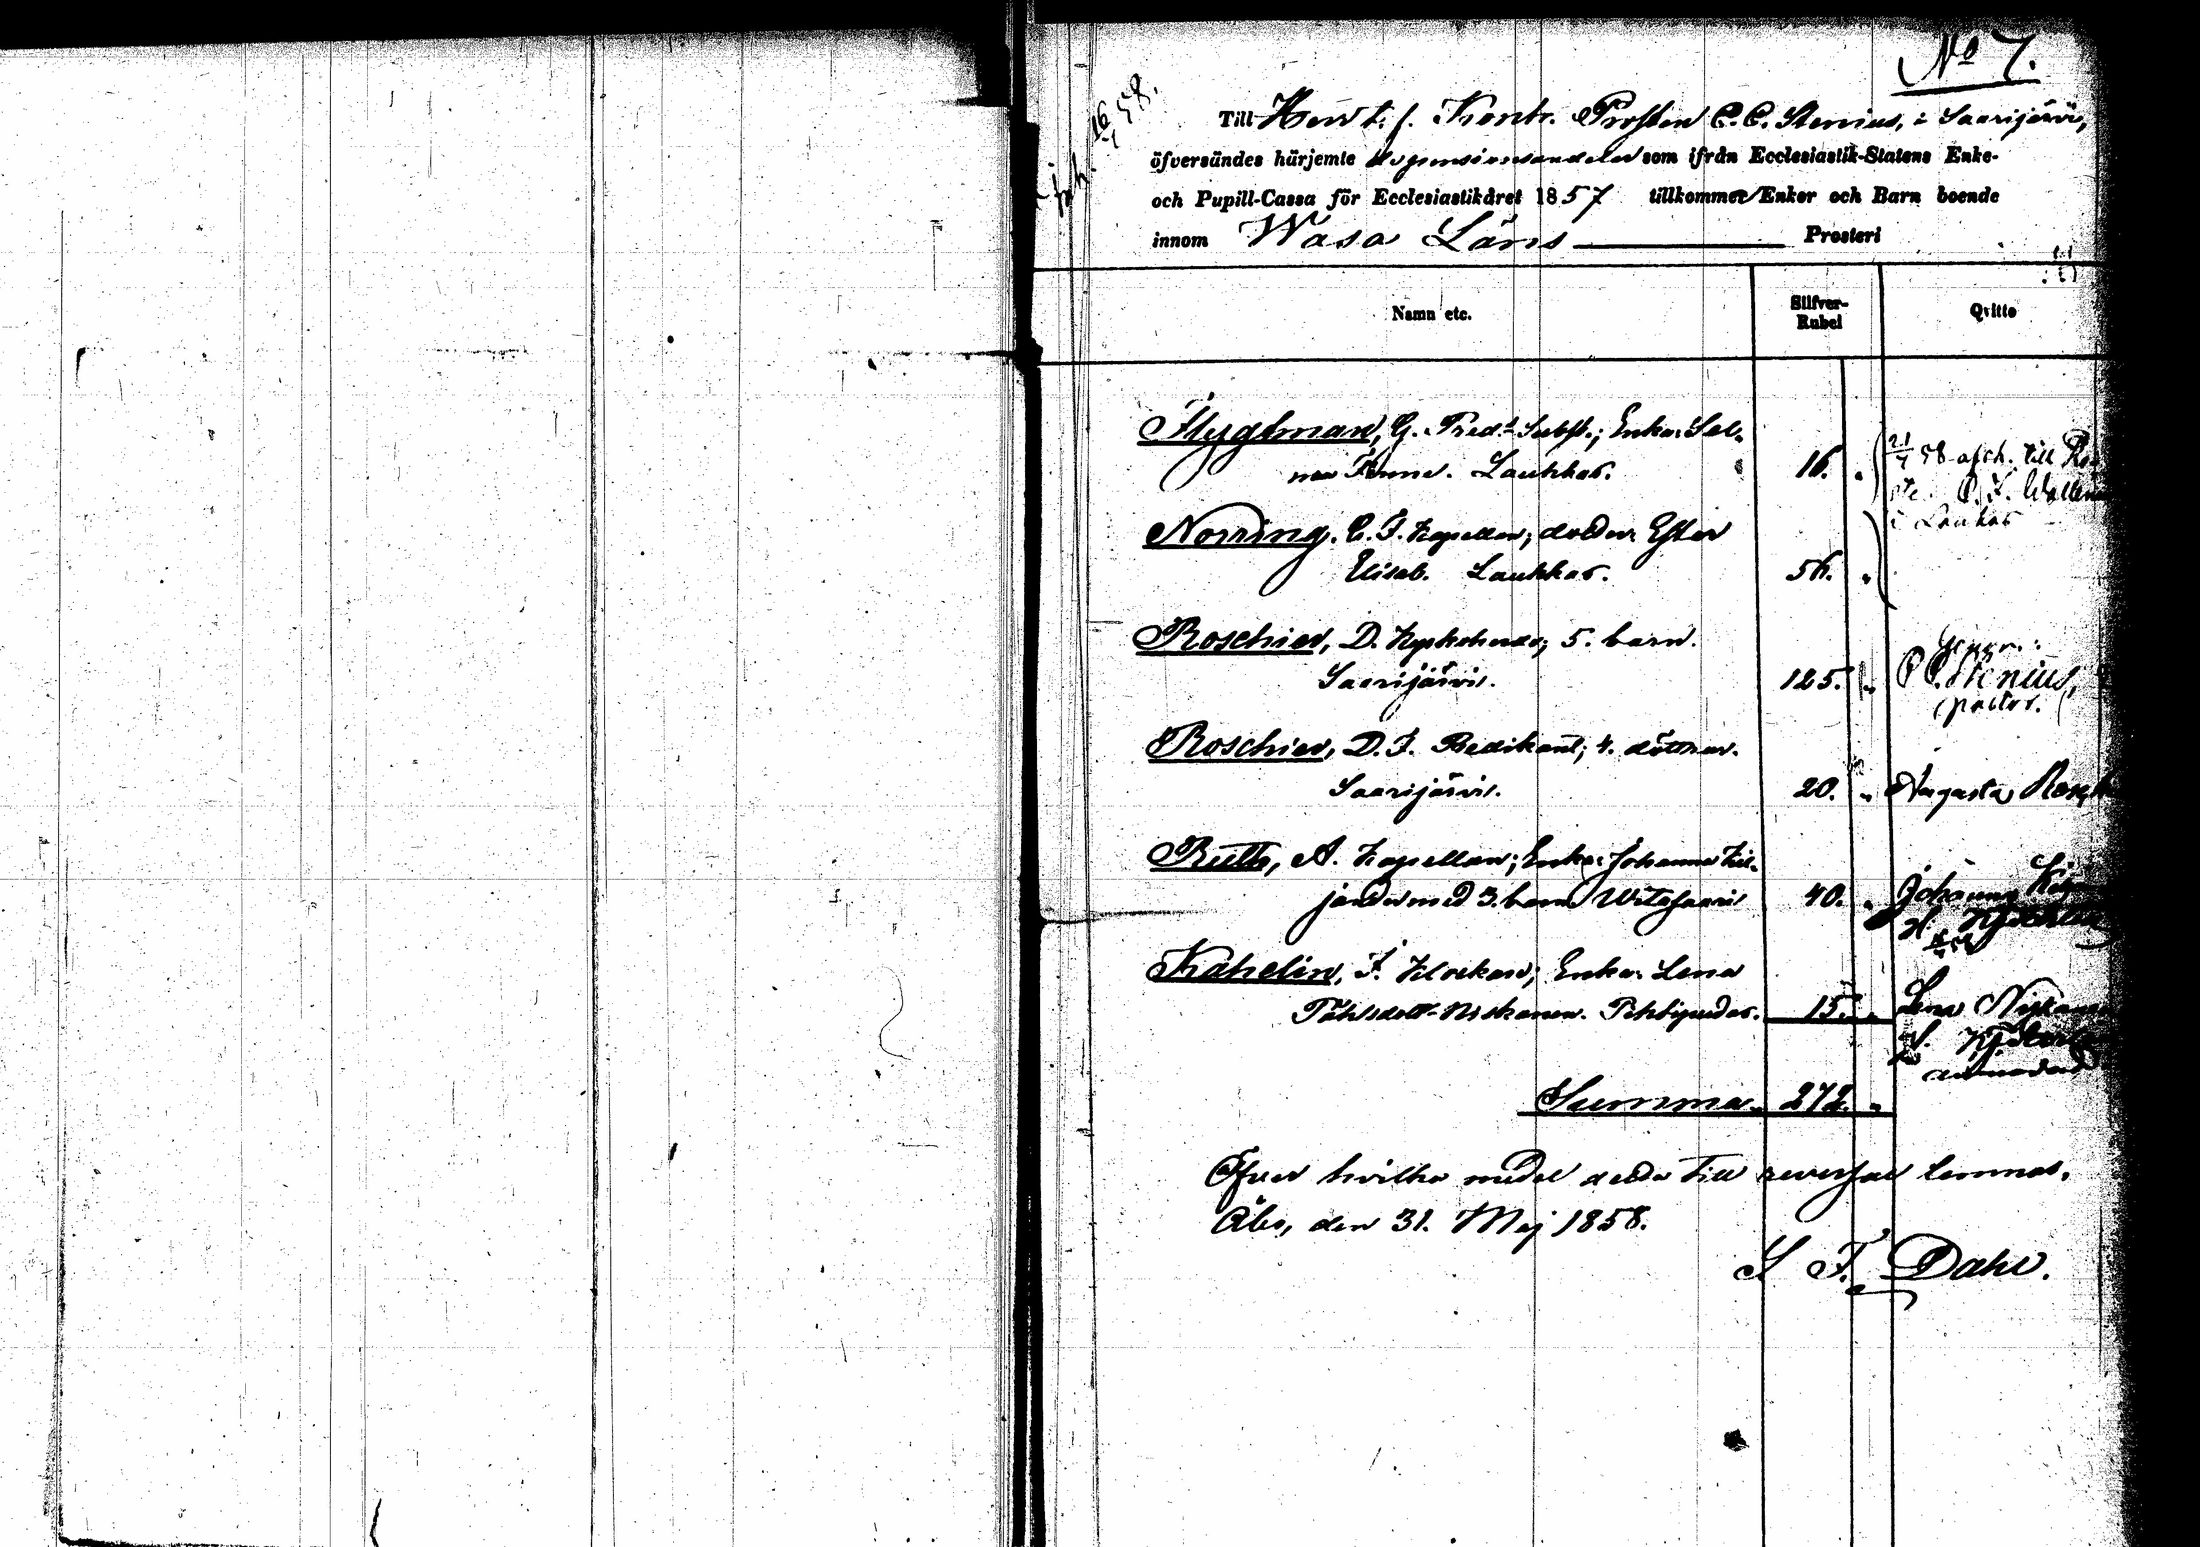 No 7.
16/7 58.
Till Herr t. f. Kontr. Prosten C. C. Stenius, i Saarijärvi,
öfversändes härjemte de pensionsandelar som ifrån Ecclesiastik-Statens Enke-
och Pupill-Cassa för Ecclesiastikåret 1857 tillkomma Enkor och Barn boende
innom Wasa Läns Prosteri
Namn etc. Silfver-Rubel Qvitto
Flygtman, G. Fred. Subst.; Enka: Sal.
Anna. Laukkas. 16. "
21/7 58 afsk. till
C. F.
i Laukas
Norring, C. F. Kapellan; dotter: Ester
Elisab. Laukkas. 56. "
Roschier, D. Kyrkoherde; 5. barn.
Saarijärvi. 125. " C C. Stenius,
pastor.
Roschier, D. F. Predikant; 4. döttrar.
Saarijärvi. 20. " Augusta
Ruth, A. Kapellan; Enka: Johanna Kil-
jander med 3. barn Witasaari 40. " Johanna
Kahelin, F. Klockare; Enka: Lena
Påhlsdott. Niskanen. Pihtipudas. 15. " Lena
Summa 272. "
Öfver hvilka medel reversal lemnas.
Åbo, den 31. Maj 1858.
S F. Dahl.